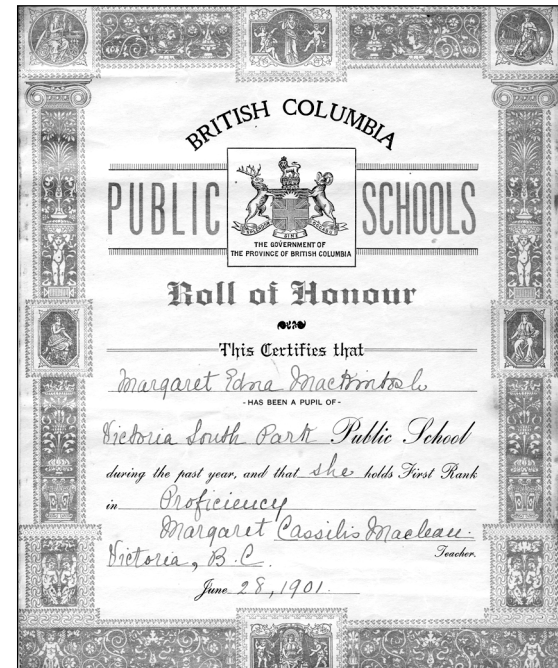 BRITISH COLUMBIA
PUBLIC SCHOOLS
THE GOVERNMENT OF
THE PROVINCE OF BRITISH COLUMBIA
Roll of Honour
This Certifies that
Margaret Edna MacKintosh
- HAS BEEN A PUPIL OF -
Victoria South Park Public School
during the past year, and that she holds First Rank
in Proficiency
Margaret Cassilis Maclean.
Teacher.
Victoria, B.C.
June 28, 1901.